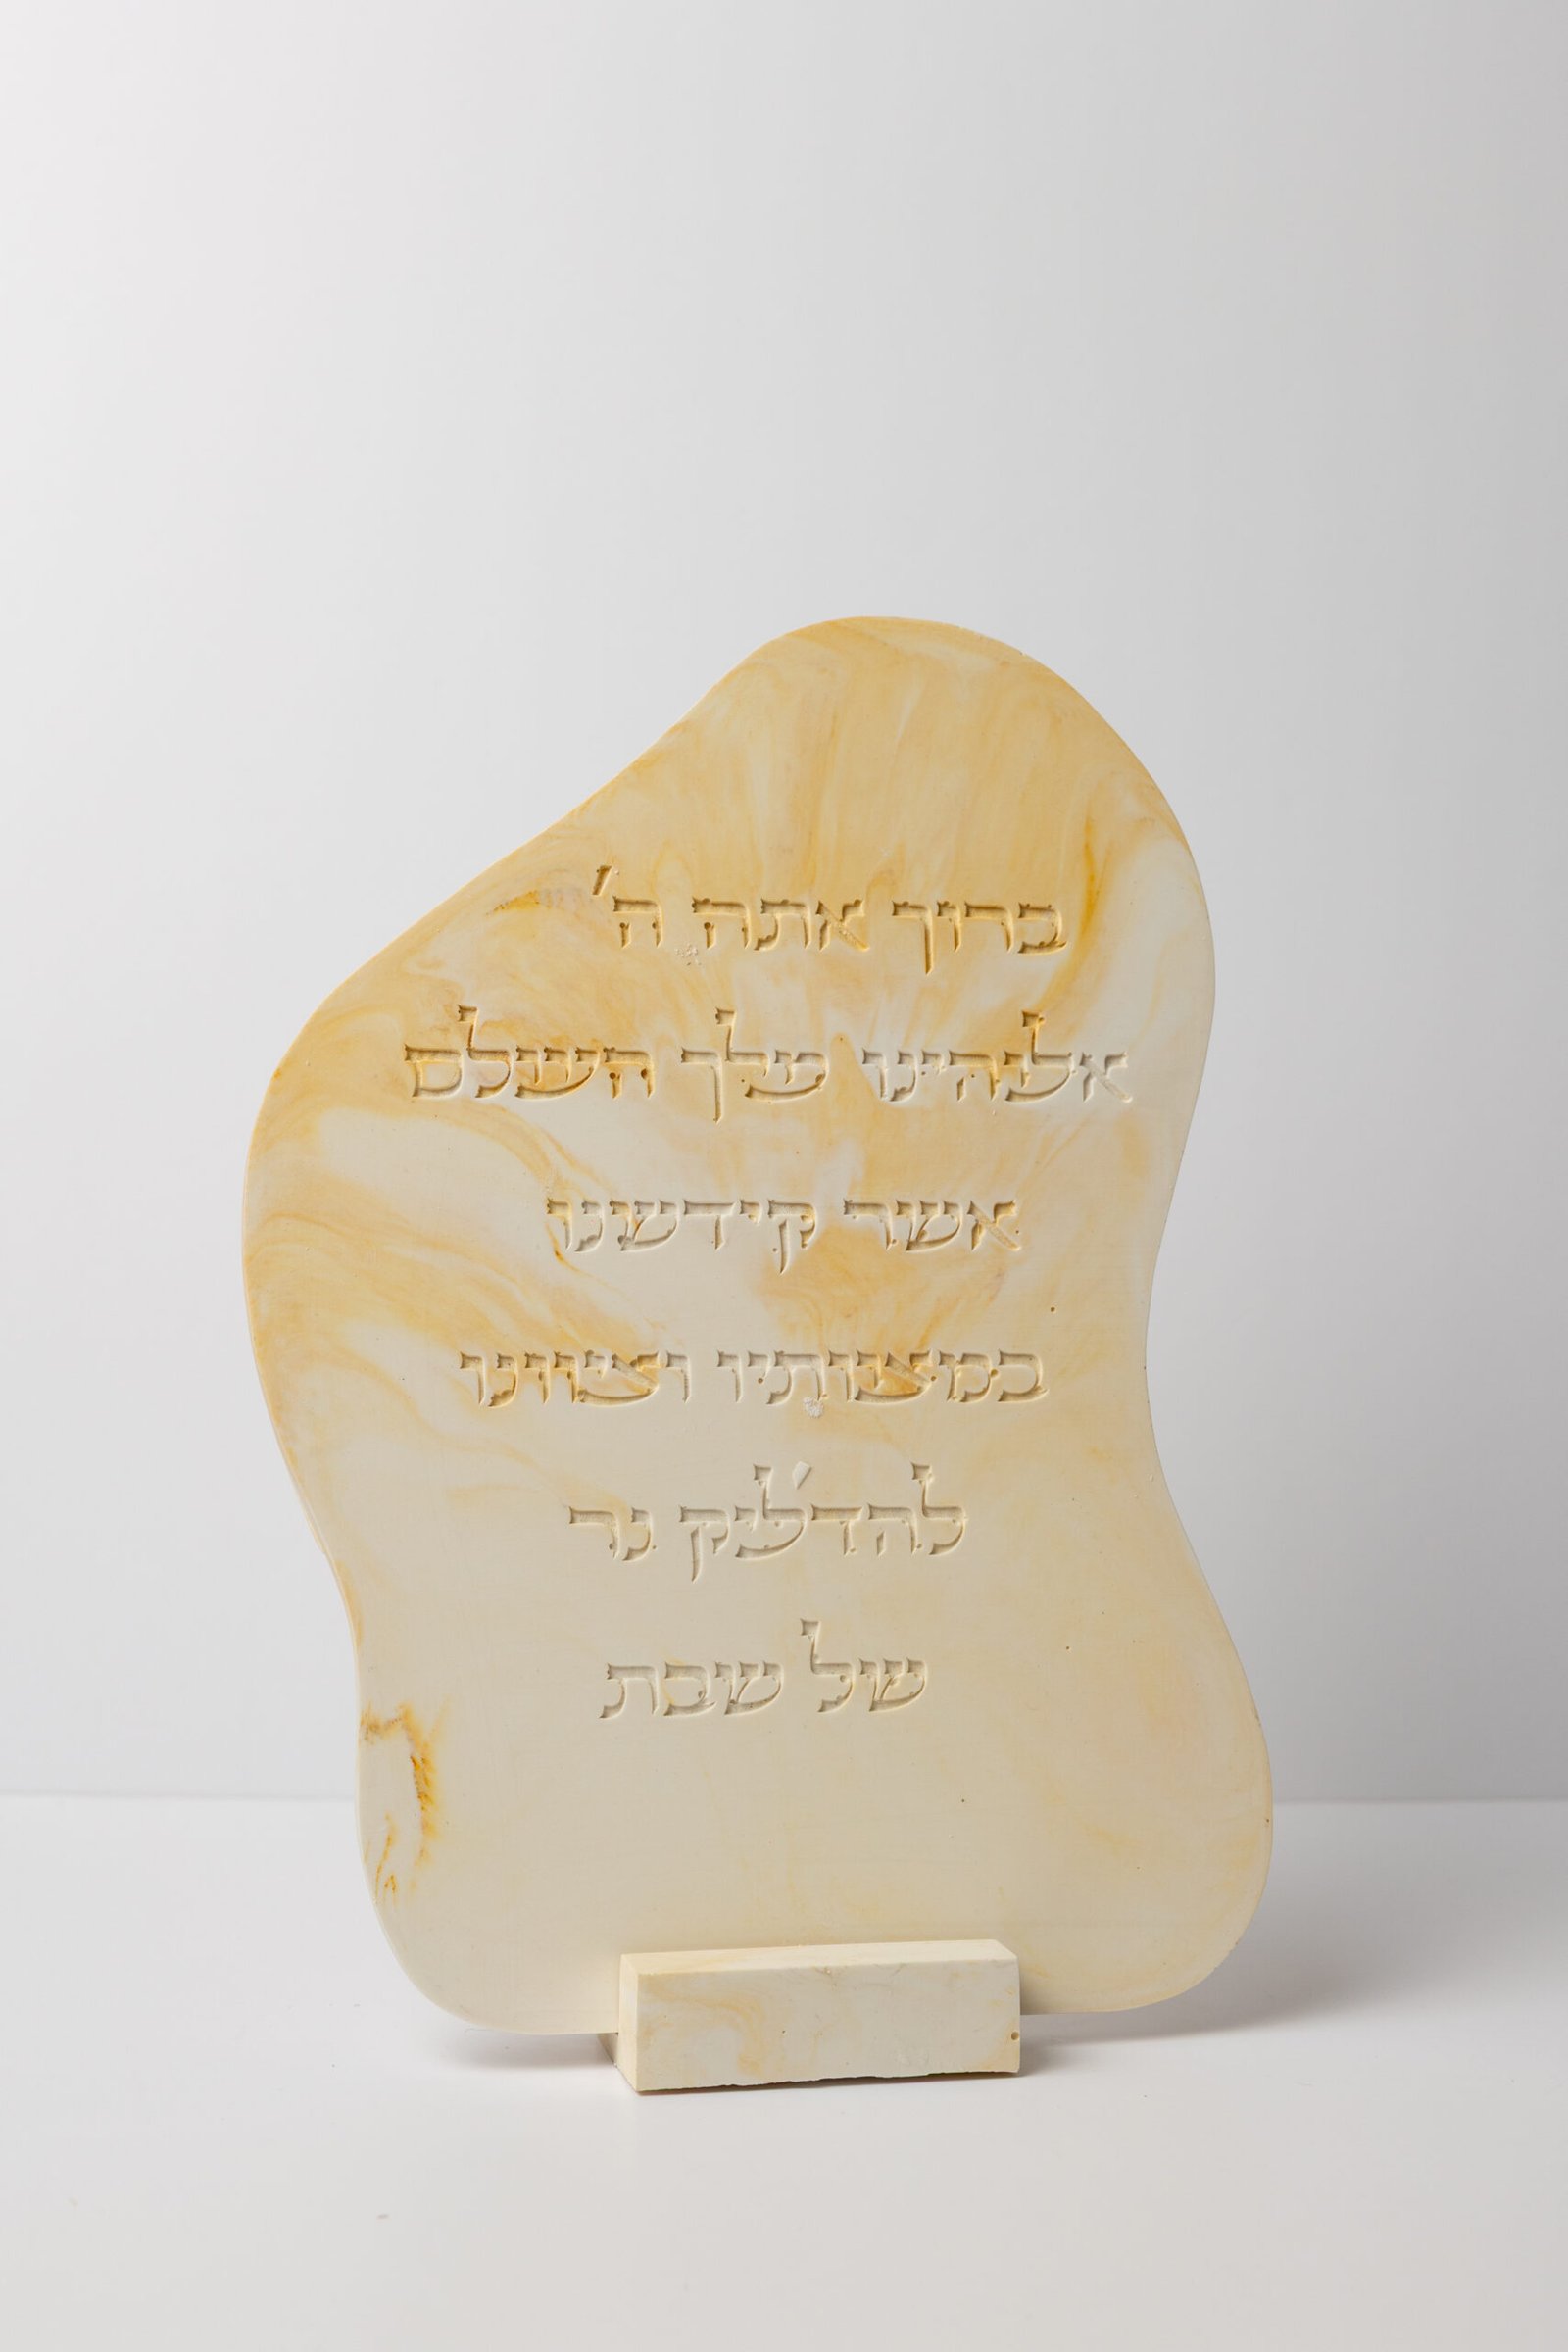 ברוך אתה ה'
אלוהינו מלך העולם
אשר קידשנו
במצוותיו וציוונו
להדליק נר
של שבת